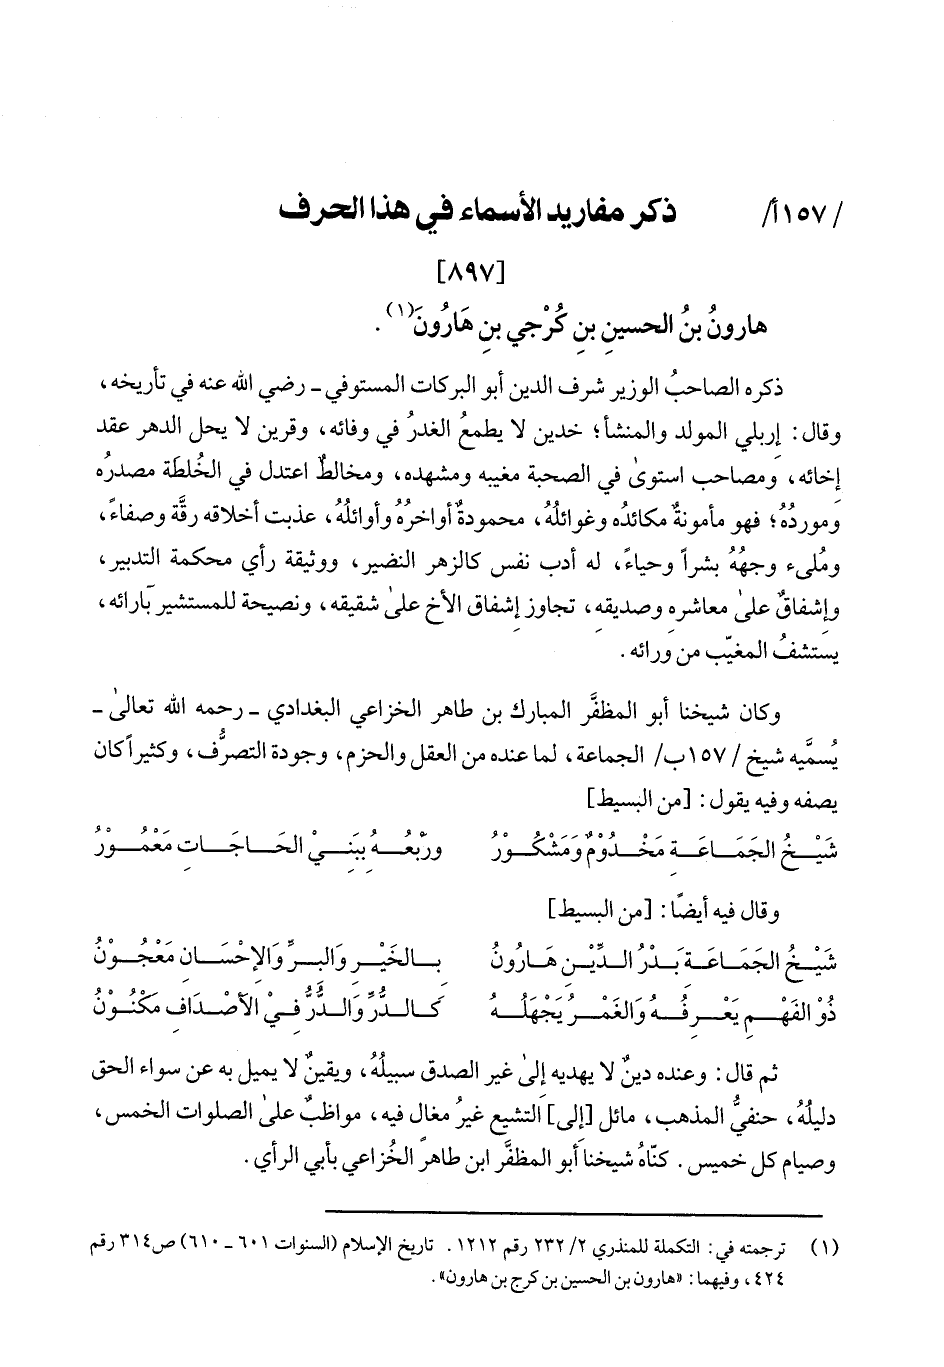 /١٥٧أ/ ذكر مفاريد الأسماء في هذا الحرف
[٨٩٧]
هارونُ بنُ الحسينِ بنِ كُرْجي بنِ هَارُونَ(١).
ذكره الصاحبُ الوزير شرف الدين أبو البركات المستوفي ـ رضي الله عنه في تأريخه،
وقال: إربلي المولد والمنشأ؛ خدين لا يطمعُ الغدرُ في وفائه، وقرين لا يحل الدهر عقد
إخائه، ومصاحب استوىٰ في الصحبة مغيبه ومشهده، ومخالطٌ اعتدل في الخُلطَة مصدرُه
وموردُهُ؛ فهو مأمونةٌ مكائدُه وغوائلُهُ، محمودةٌ أواخرُهُ وأوائلُهُ، عذبت أخلاقه رقَّة وصفاءً،
ومُلىء وجهُهُ بشراً وحياءً، له أدب نفس كالزهر النضير، ووثيقة رأي محكمة التدبير،
وإشفاقٌ علىٰ معاشرِه وصديقِه، تجاوز إشفاق الأخِ علىٰ شقيقِه، ونصيحة للمستشيرِ بآرائه،
يستشفُ المغيّب من ورائه.
وكان شيخنا أبو المظفَّر المبارك بن طاهر الخزاعي البغدادي ـ رحمه الله تعالىٰ ـ
يُسمَّيه شيخ /١٥٧ب/ الجماعة، لما عنده من العقل والحزم، وجودة التصرُّف، وكثيراً كان
يصفه وفيه يقول: [من البسيط]
شَيْـخُ الجَمَـاعَـةِ مَخْـدُومٌ وَمَشْكُـورُ ورَبْعُـهُ بِبَنـيْ الحَـاجَـاتِ مَعْمُـورُ
وقال فيه أيضًا: [من البسيط]
شَيْـخُ الجَمَـاعَـةِ بَـدْرُ الـدِّيْـنِ هَـارُونُ بـالخَيْـرِ وَالبِـرِّ وَالإحْسَـانِ مَعْجُـونُ
ذُوْ الفَهْـمِ يَعْـرِفُـهُ وَالغَمْـرُ يَجْهَلُـهُ كَـالـدُّرِّ وَالـدُّرُّ فِـيْ الأصْـدَافِ مَكْنُـونُ
ثم قال: وعنده دينٌ لا يهديه إلىٰ غير الصدق سبيلُهُ، ويقينٌ لا يميل به عن سواء الحق
دليلُهُ، حنفيُّ المذهب، مائل [إلى] التشيع غيرُ مغال فيه، مواظبٌ علىٰ الصلوات الخمس،
وصيام كل خميس. كنّاهُ شيخنا أبو المظفَّر ابن طاهر الخُزاعي بأبي الرأي.
(١) ترجمته في: التكملة للمنذري ٢/ ٢٣٢ رقم ١٢١٢. تاريخ الإسلام (السنوات ٦٠١ ـ ٦١٠) ص٣١٤ رقم
٤٢٤، وفيهما: «هارون بن الحسين بن كرج بن هارون».